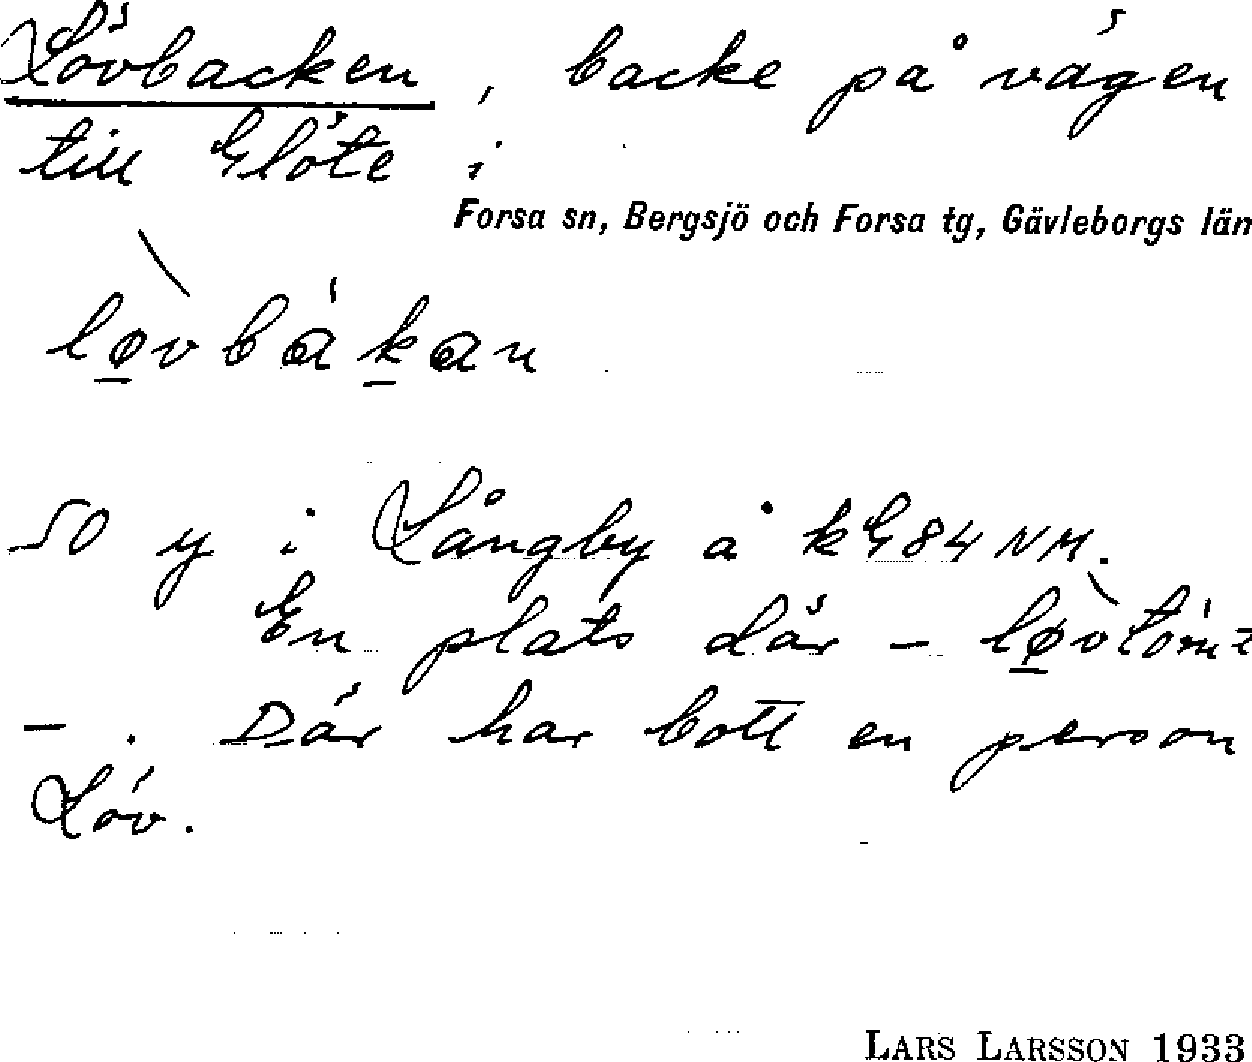 Lövbacken, backe på vägen
till Glöte i
Forsa sn, Bergsjö och Forsa tg, Gävleborgs län
løvbákan
50 y i Långby å kG84NM.
En plats där – løvtömt
– . Där har bott en person
Löv.
LARS LARSSON 1933